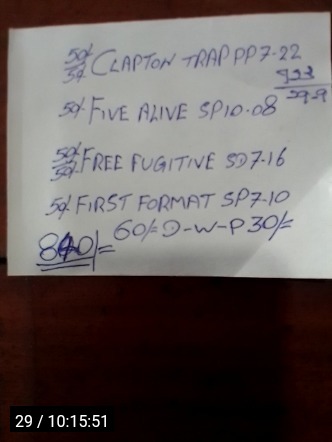 50/- CLAPTON TRAP PP7-22
50/-
50/- FIVE ALIVE SP10.08
50/- FREE FUGITIVE SD7-16
50/-
50/- FIRST FORMAT SP7-10
60/= D-W-P 30/=
29 / 10:15:51